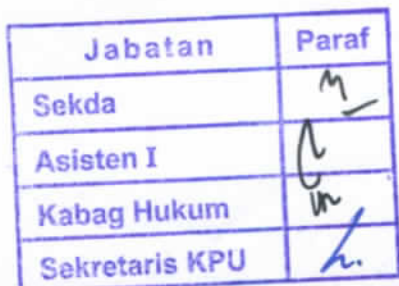 Jabatan Paraf
Sekda
Asisten I
Kabag Hukum
Sekretaris KPU